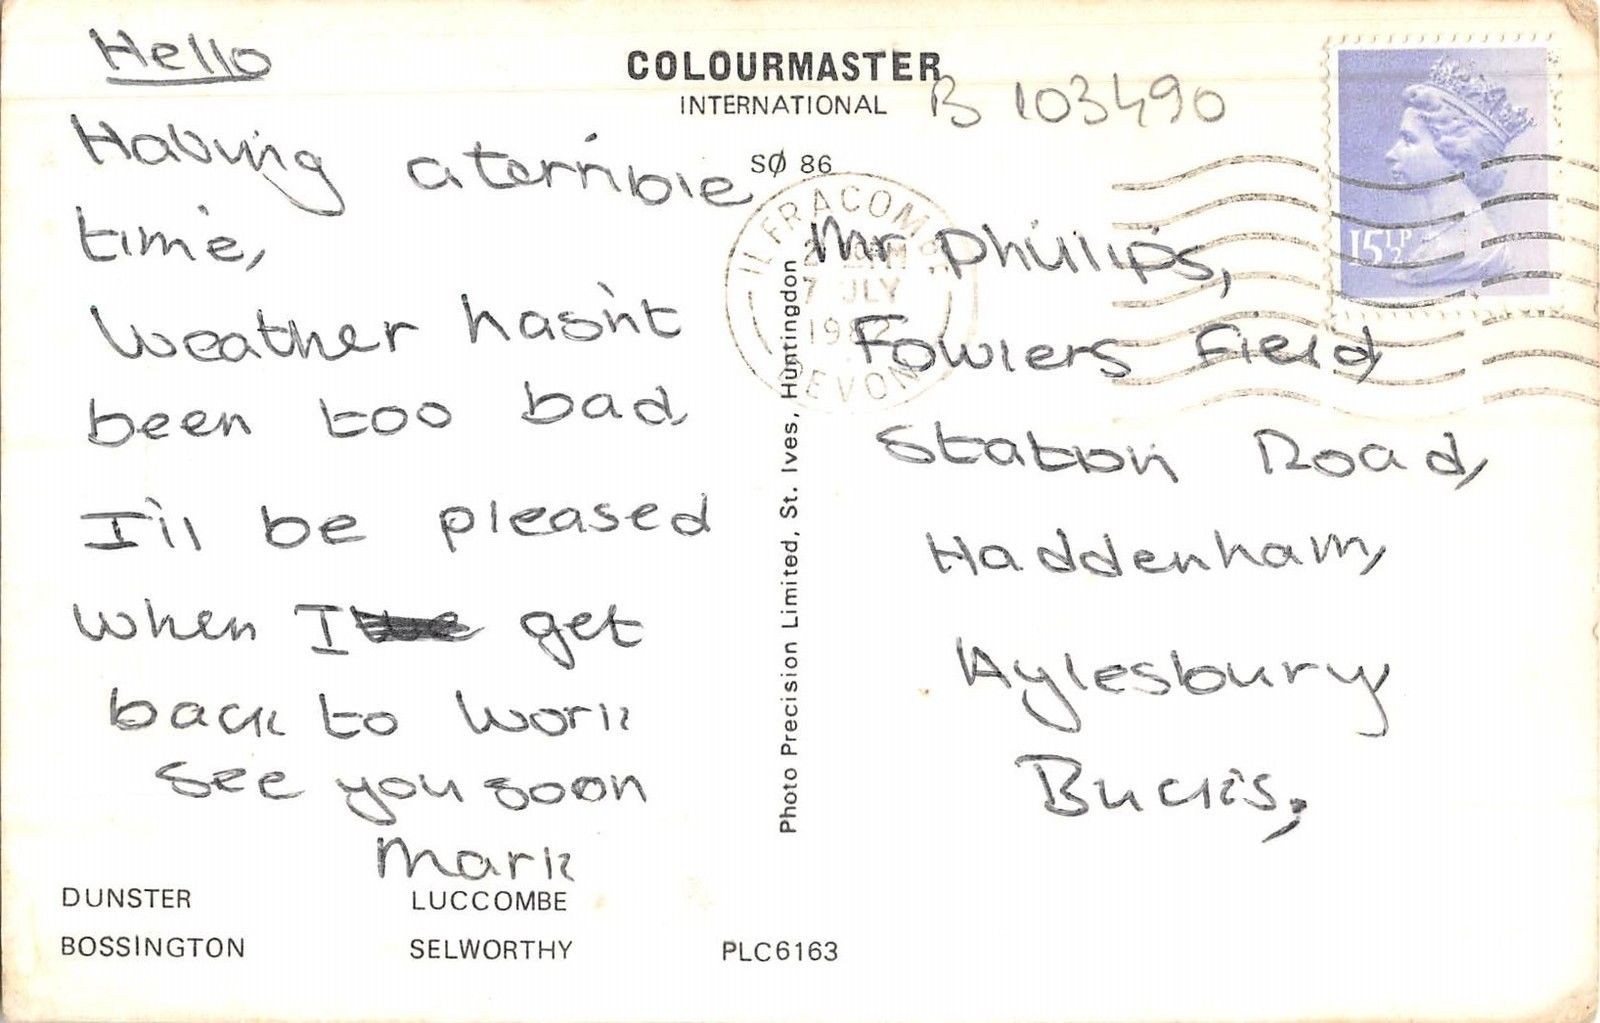 Hello
COLOURMASTER
INTERNATIONAL
B 103490
SØ 86
Having a terrible
time,
Weather hasn't
been too bad,
I'll be pleased
when I get
back to work
see you soon
Mark
Mr Phillips,
Fowlers Field
Station Road,
Haddenham,
Aylesbury
Bucks,
15½P
ILFRACOMBE
7 JLY
DEVON
Photo Precision Limited, St. Ives, Huntingdon
DUNSTER LUCCOMBE
BOSSINGTON SELWORTHY PLC6163